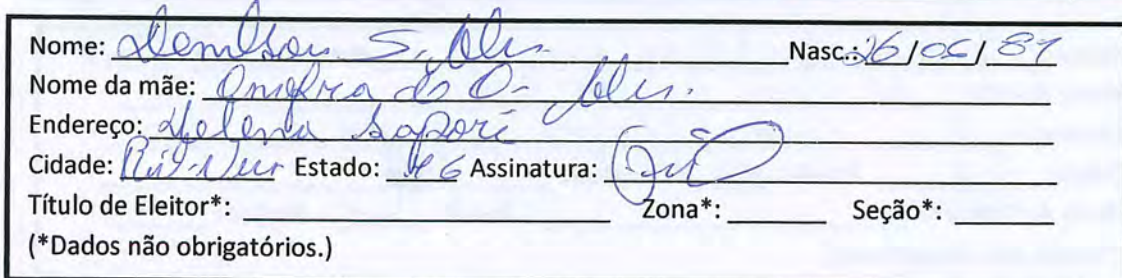 Nome: Denilson S. Nasc.: 26/06/87
Nome da mãe:
Endereço: Helena Sapori
Cidade: Estado: MG Assinatura:
Título de Eleitor*: Zona*: Seção*:
(*Dados não obrigatórios.)